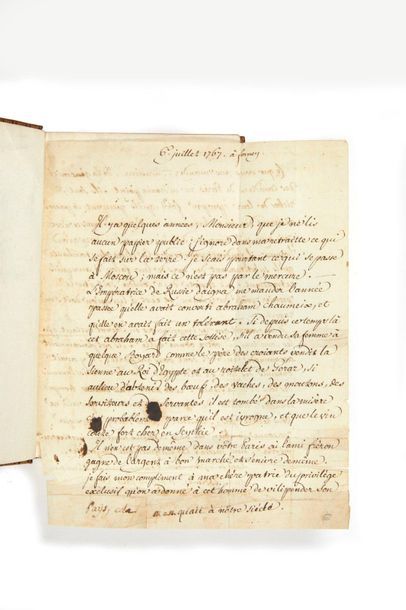 6e juillet 1767. à ferney
Il y a quelques années, Monsieur que je ne lis
aucun papier publié; j'ignore dans ma retraitte ce qui
se fait sur la terre. Je scais pourtant ce qui se passe
à Moscou; mais ce n'est pas par le mercure.
L'Impératrice de Russie daigna me mander l'année
passée qu'elle avait converti abraham Chaumeix, et
qu'elle en avait fait un tolérant. Si depuis ce temps là
cet abraham a fait cette sottise, s'il a vendu sa femme à
quelque Boyard comme le père des croiants vendit la
sienne au Roi d'Egypte et au roitelet de Gérar, si
au lieu d'obtenir des bœufs, des vaches, des moutons, des
serviteurs et servantes il est tombé dans la misère
probablement parce qu'il est ivrogne, et que le vin
coute fort cher en Scythie.
Il n'en est pas de même dans votre Paris où l'ami fréron
gagne de l'argent à bon marché et s'enivre de même.
je fais mon compliment à ma chère patrie du privilège
exclusif qu'on a donné à cet homme de vilipender son
Pays, cela manquait à nôtre siècle